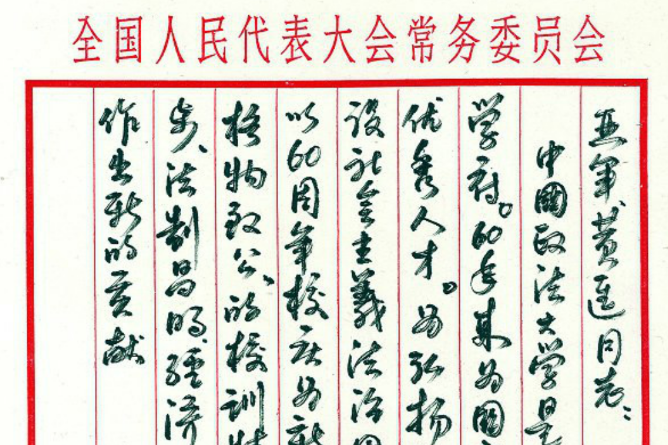 全国人民代表大会常务委员会
亚军、黄進同志：
中國政法大学是
学府。60年来为國
优秀人才。为弘扬
设社会主義法治国
以60周年校庆为新
格物致公、的校训精
步、法制昌明、经济
作出新的贡献